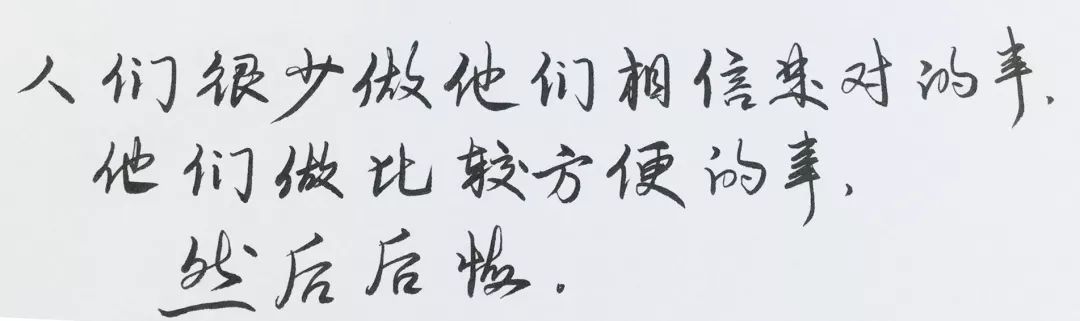 人们很少做他们相信是对的事.
他们做比较方便的事,
然后后悔.